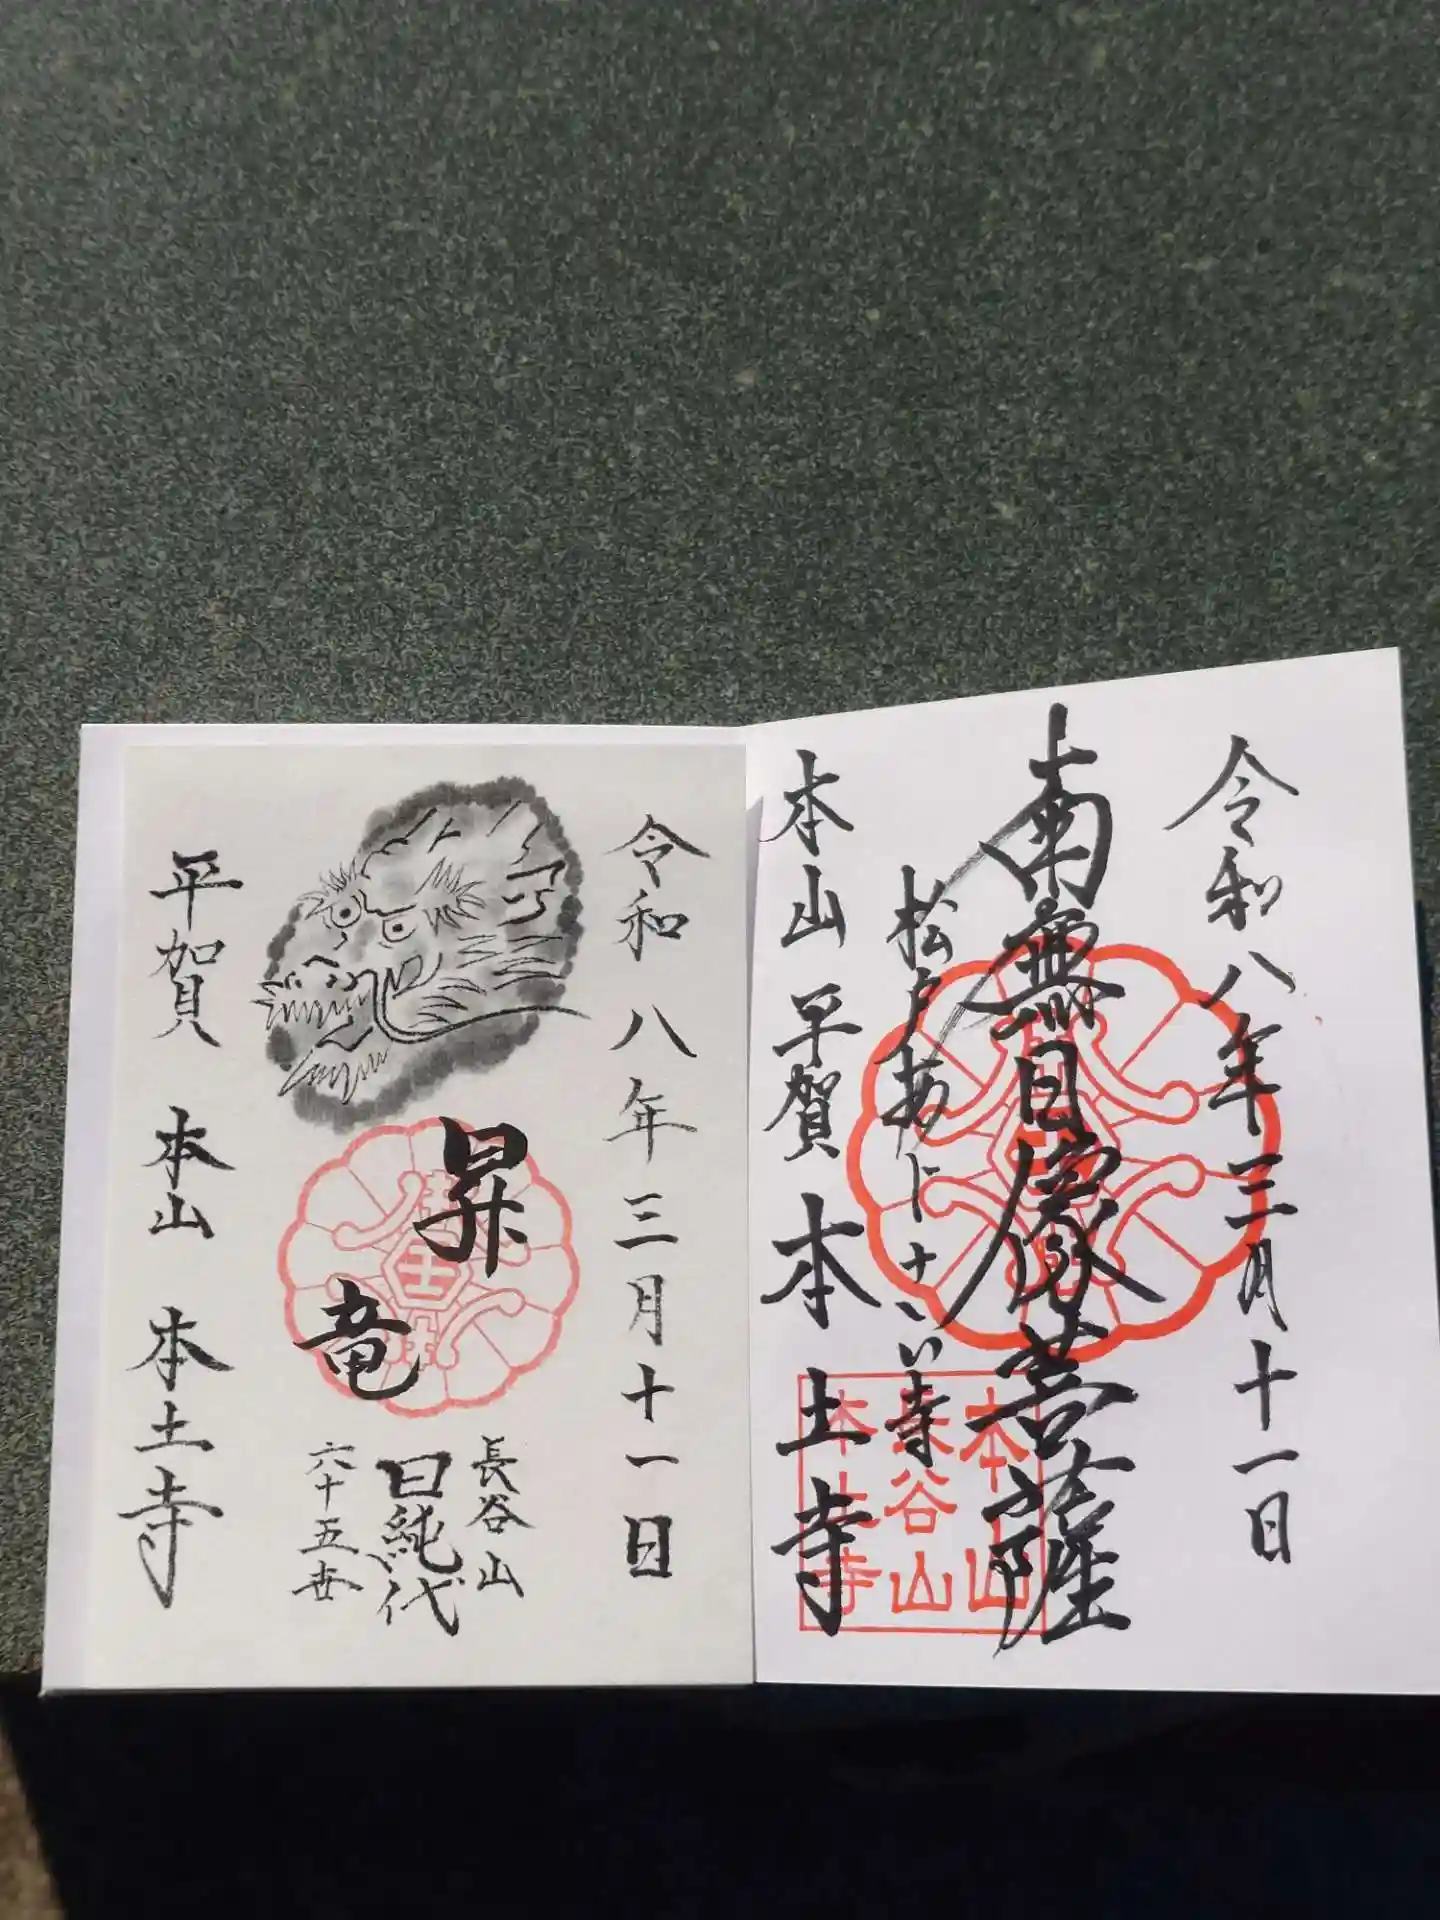 令和八年三月十一日
南無日像菩薩
松戸あじさい寺
本山平賀本土寺
本山
長谷山
本土寺
令和八年三月十一日
昇
竜
長谷山
日純代
六十五世
平賀 本山 本土寺